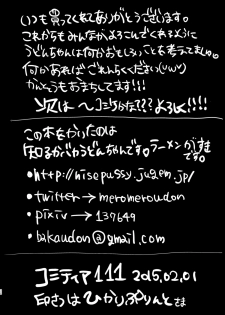 いつも買ってくれてありがとうございます。
これからもみんながよろこんでくれるように
うどんちゃんは何かおもしろいことを考ってましゅ。
何かあればごれんらくください(υωυ)
かんそうもおまちしてます!!!
次は へコミケかな??? よろしく!!!!
この本をかいたのは
知るかバカうどんちゃんです。ラーメンがすき
です。
•http://nisepussy.jugem.jp/
•twitter→meromeroudon
•pixiv→137649
•bakaudon@gmail.com
コミティア111 2015.02.01
印さつは ひかりぷりんとさま